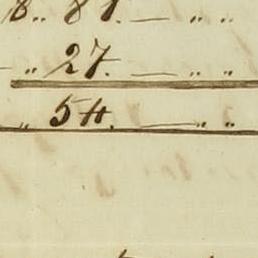 8„ 81. — „ „
– „ 27. — „ „
„ 54. — „ „